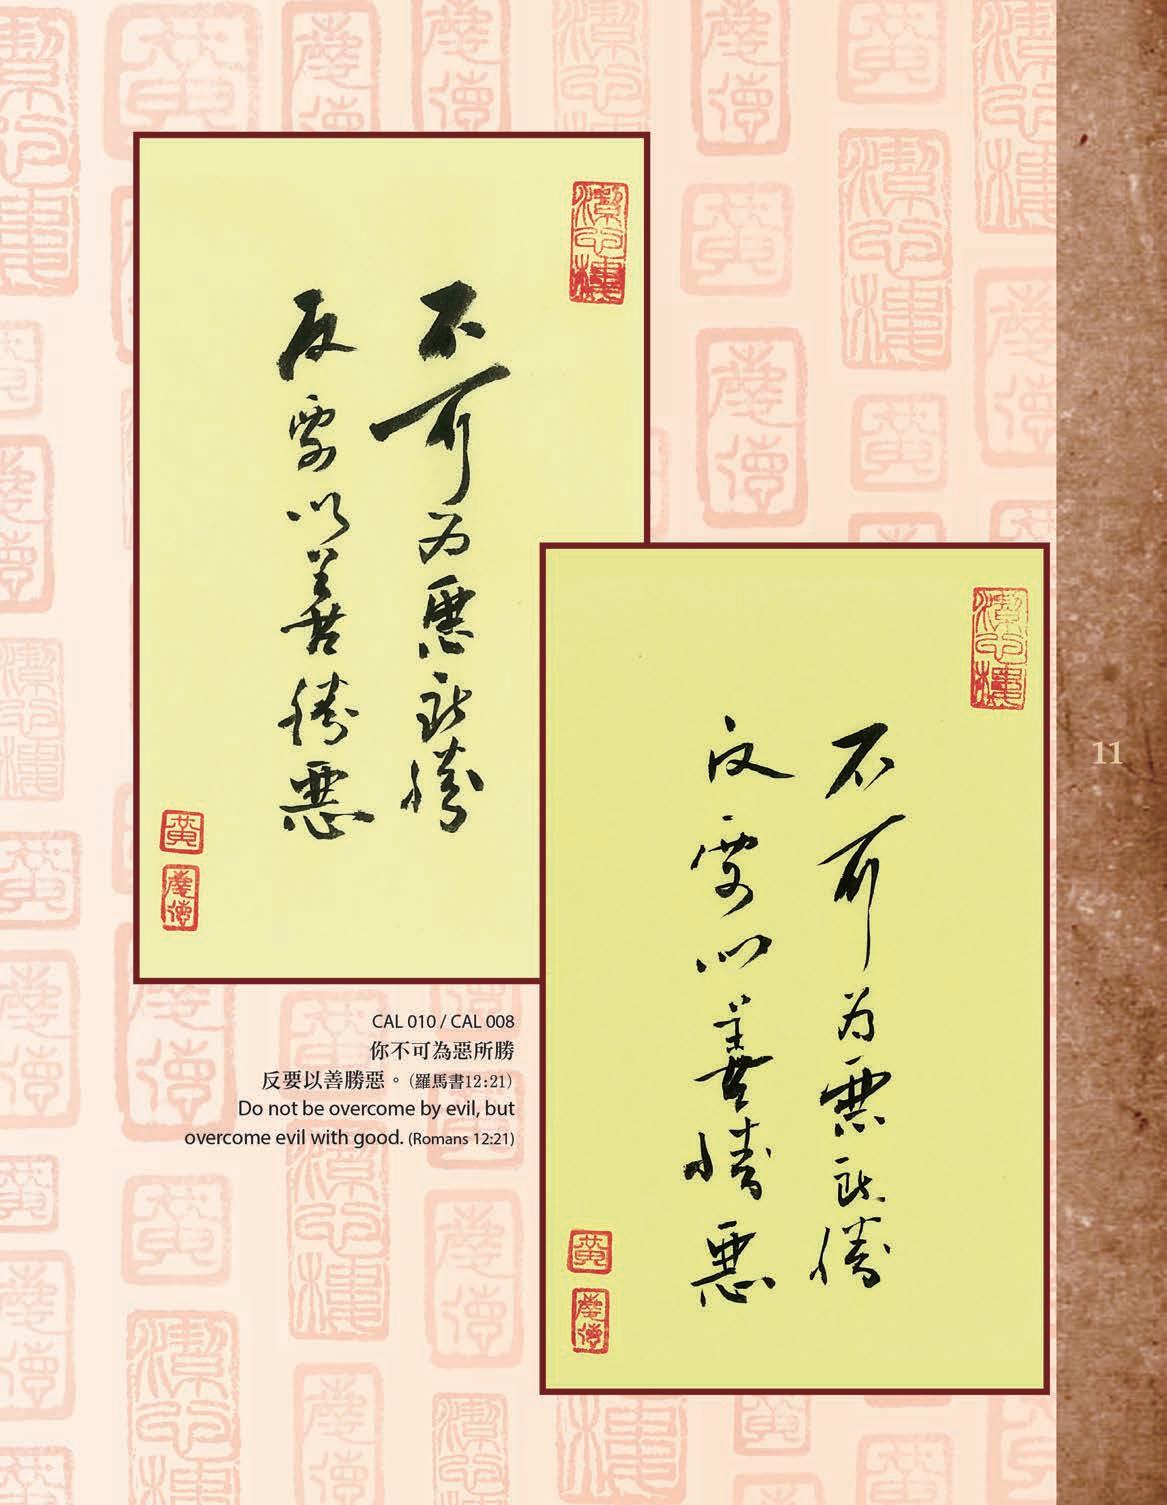 不可为惡所勝
反要以善勝惡
黃
慶德
不可为惡所勝
反要以善勝惡
黃
慶德
CAL 010 / CAL 008
你不可為惡所勝
反要以善勝惡。(羅馬書12:21)
Do not be overcome by evil, but
overcome evil with good. (Romans 12:21)
11